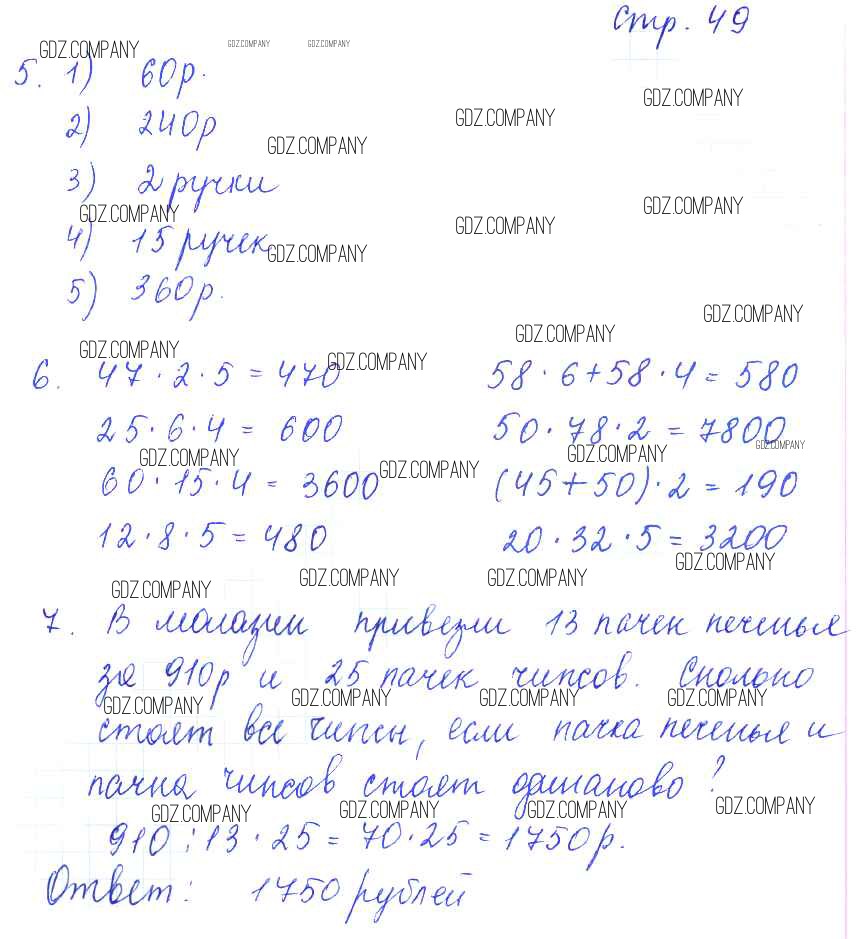 стр. 49
GDZ.COMPANY GDZ.COMPANY GDZ.COMPANY
5. 1) 60р.
GDZ.COMPANY
GDZ.COMPANY
2) 240р
GDZ.COMPANY
3) 2 ручки
GDZ.COMPANY GDZ.COMPANY
GDZ.COMPANY
4) 15 ручек
GDZ.COMPANY
5) 360р.
GDZ.COMPANY
GDZ.COMPANY
GDZ.COMPANY GDZ.COMPANY
6. 47 · 2 · 5 = 470 58 · 6 + 58 · 4 = 580
25 · 6 · 4 = 600 50 · 78 · 2 = 7800
GDZ.COMPANY GDZ.COMPANY GDZ.COMPANY GDZ.COMPANY
60 · 15 · 4 = 3600 (45 + 50) · 2 = 190
12 · 8 · 5 = 480 20 · 32 · 5 = 3200
GDZ.COMPANY GDZ.COMPANY GDZ.COMPANY GDZ.COMPANY
7. В магазин привезли 13 пачек печенья
за 910р и 25 пачек чипсов. Сколько
GDZ.COMPANY GDZ.COMPANY GDZ.COMPANY GDZ.COMPANY
стоят все чипсы, если пачка печенья и
пачка чипсов стоят одинаково?
GDZ.COMPANY GDZ.COMPANY GDZ.COMPANY GDZ.COMPANY
910 : 13 · 25 = 70 · 25 = 1750р.
Ответ: 1750 рублей